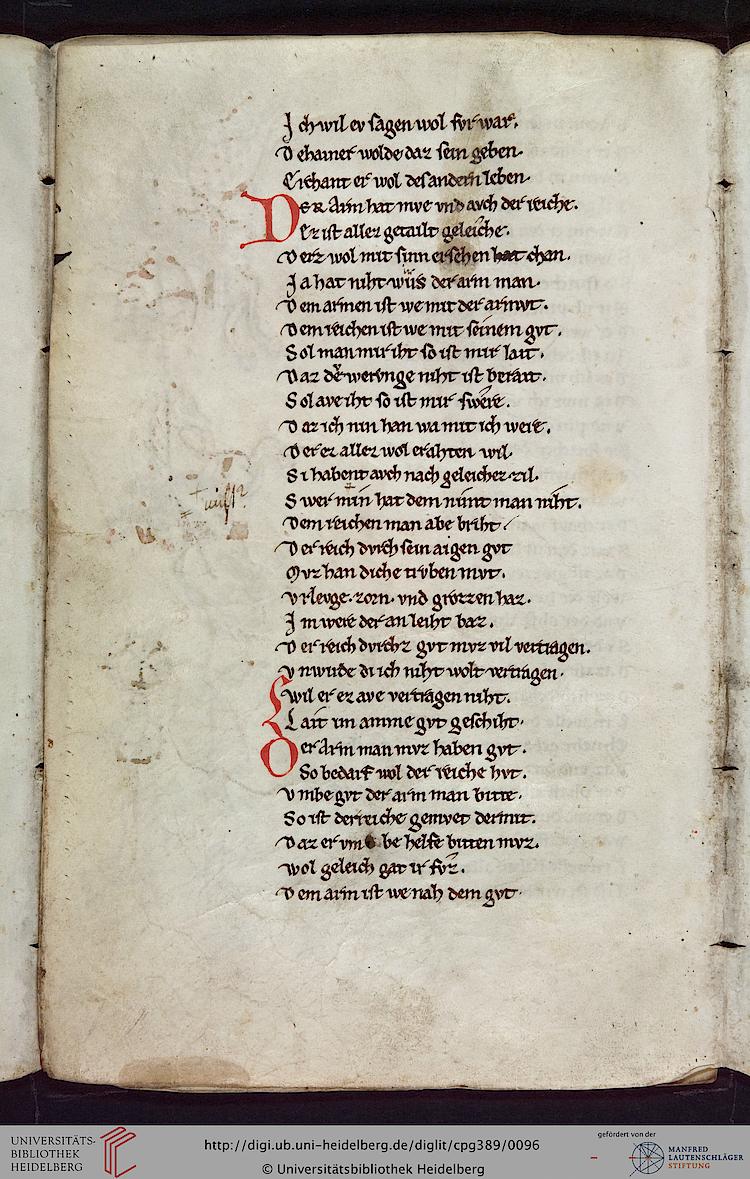 Ich wil ev sagen wol fvr war.
Dehainer wolde daz sein geben.
Erchant er wol des andern leben.
Der Arm hat mve vnd avch der reiche.
Ez ist allez getailt geleiche.
Derz wol mit sinn ersehen chan.
Ja hat niht wirs der arm man.
Dem armen ist we mit der armvt.
Dem reichen ist we mit seinem gvt.
Sol man mir iht so ist mir lait.
Daz der wervnge niht ist berait.
Sol ave iht so ist mir swere.
Daz ich nin han wa mit ich were.
Der ez allez wol erahten wil.
Si habent avch nach geleichez zil.
Swer min hat dem nimt man niht.
Dem reichen man abe briht.
Der reich dvrch sein aigen gvt
Mvz han diche trvben mvt.
Vrlevge. zorn. vnd grozzen haz.
Im were der an leiht baz.
Der reich dvrchz gvt mvz vil vertragen.
Vnwirde di ich niht wolt vertragen.
Ewil er ez ave vertragen niht.
Lait im amme gvt geschiht.
Der Arm man mvz haben gvt.
So bedarf wol der reiche hvt.
Vmbe gvt der arm man bitte.
So ist der reiche gemvet dermit.
Daz er vm be helfe bitten mvz.
wol geleich gat ir fvz.
Dem arm ist we nah dem gvt.
UNIVERSITÄTS-
BIBLIOTHEK
HEIDELBERG
http://digi.ub.uni-heidelberg.de/diglit/cpg389/0096
© Universitätsbibliothek Heidelberg
gefördert von der
MANFRED
LAUTENSCHLÄGER
STIFTUNG